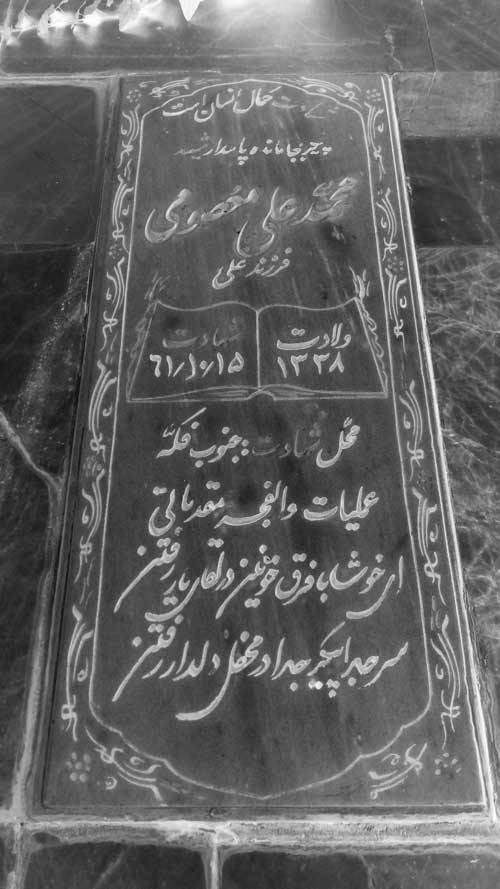 حال انسان است
پیکر بجا مانده پاسدار شهید
محمد علی معصومی
فرزند علی
ولادت شهادت
۱۳۳۸ ۶۱/۱۰/۱۵
محل شهادت : جنوب فکه
عملیات والفجر مقدماتی
ای خوشا با فرق خونین در لقای یار رفتن
سر جدا پیکر جدا در محفل دلدار رفتن